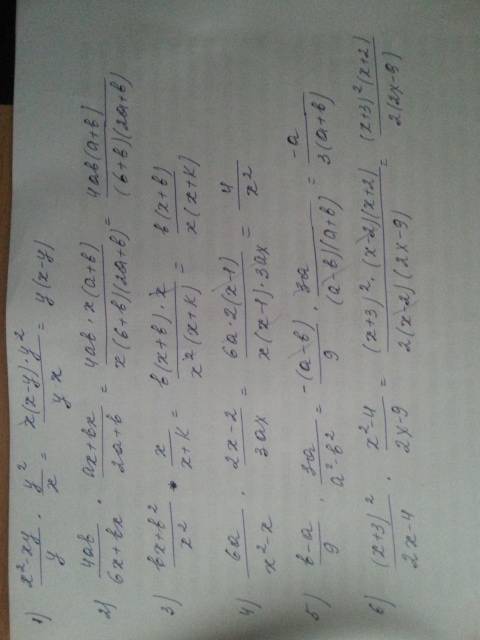 1) (x²-xy)/y · y²/x = (x(x-y)·y²)/(yx) = y(x-y)
2) 4ab/(6x+bx) · (ax+bx)/(2a+b) = (4ab·x(a+b))/(x(6+b)(2a+b)) = (4ab(a+b))/((6+b)(2a+b))
3) (bx+b²)/x² · x/(x+K) = (b(x+b)·x)/(x²(x+K)) = (b(x+b))/(x(x+K))
4) 6a/(x²-x) · (2x-2)/(3ax) = (6a·2(x-1))/(x(x-1)·3ax) = 4/x²
5) (b-a)/9 · 3a/(a²-b²) = (-(a-b))/9 · 3a/((a-b)(a+b)) = (-a)/(3(a+b))
6) (x+3)²/(2x-4) · (x²-4)/(2x-9) = ((x+3)²·(x-2)(x+2))/(2(x-2)(2x-9)) = ((x+3)²(x+2))/(2(2x-9))